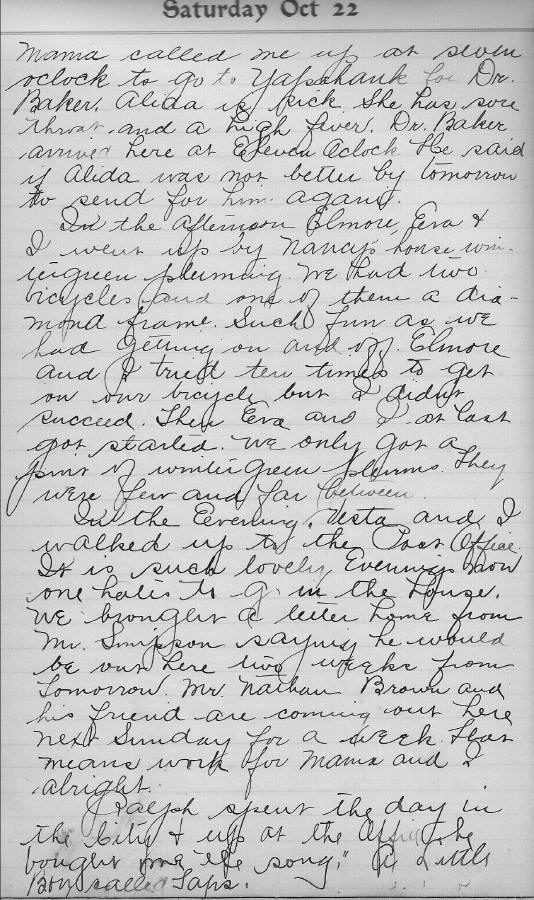 Saturday Oct 22
Mama called me up at seven
oclock to go to Yapahank for Dr.
Baker. Alida is sick. She has sore
throat and a high fiver. Dr. Baker
arrived here at Eleven Oclock He said
if Alida was not better by tomorrow
to send for him again.
In the afternoon Elmore, Eva &
I went up by Nancy's house win-
tergreen plumming. We had two
bicycles and one of them a dia-
mond frame. Such fun as we
had getting on and off. Elmore
and I tried ten times to get
on our bicycle but I didn't
succeed. Then Eva and I at last
got started. We only got a
pint of wintergreen plumms. They
were few and far between.
In the Eevening, Vesta and I
walked up to the Post Office.
It is such lovely Evenings now
one hates to go in the house.
We brought a letter home from
Mr. Simpson saying he would
be out here two weeks from
tomorrow. Mr. Nathan Brown and
his friend are coming out here
next Sunday for a week. That
means work for Mama and I
alright.
Ralph spent the day in
the City & up at the Office he
bought me the song, "A Little
Boy called Taps.